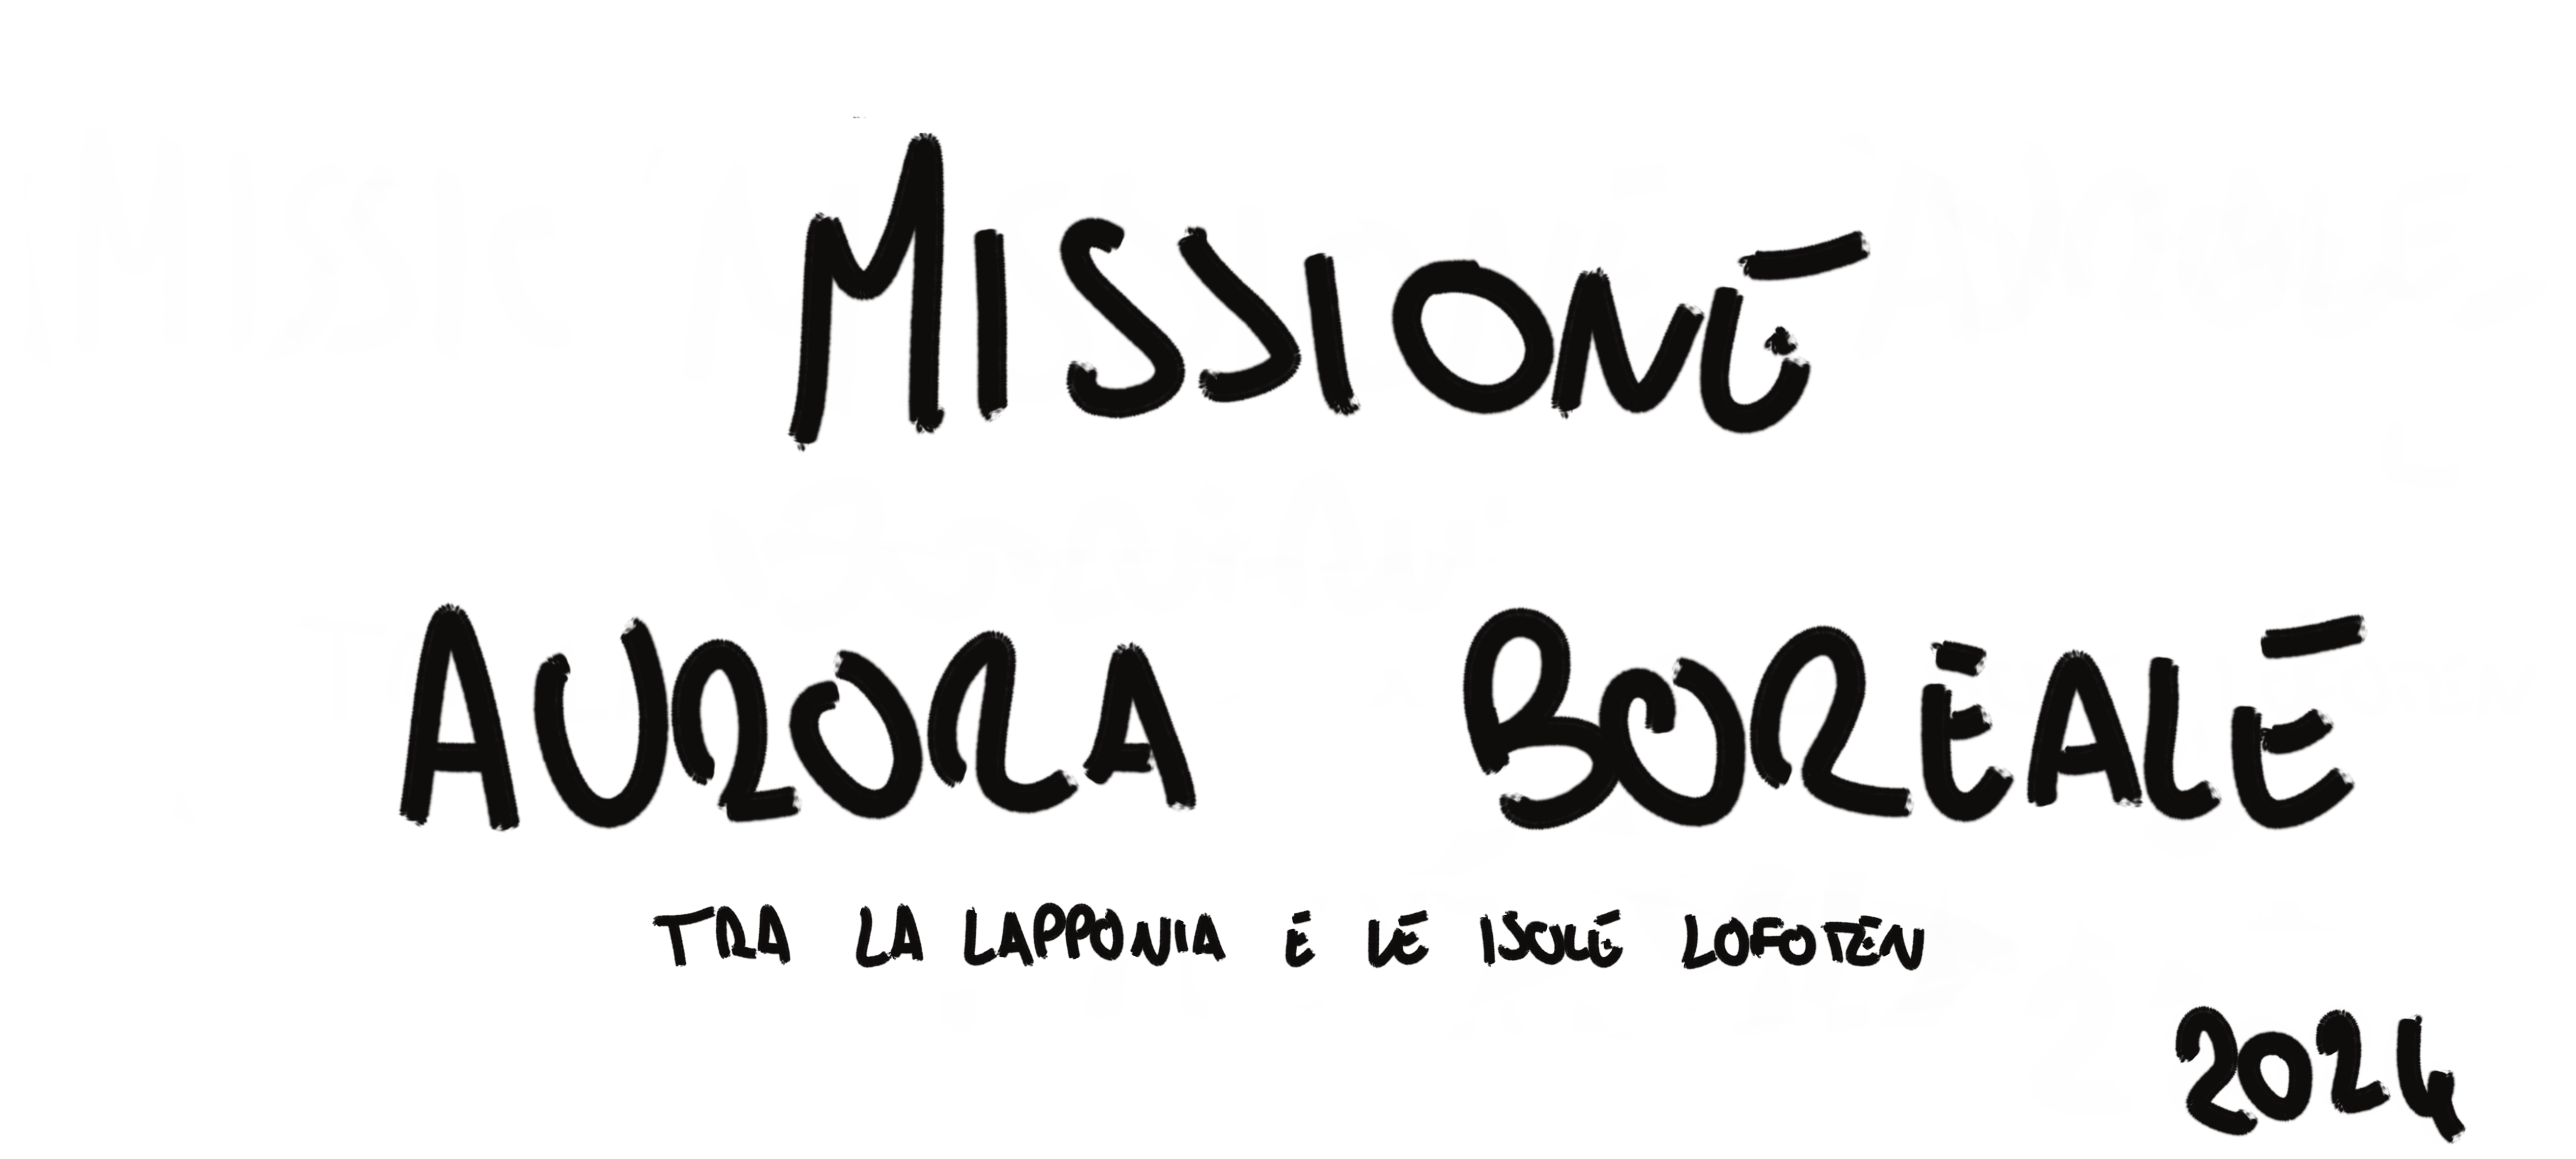 MISSIONE
AURORA BOREALE
TRA LA LAPPONIA E LE ISOLE LOFOTEN
2024